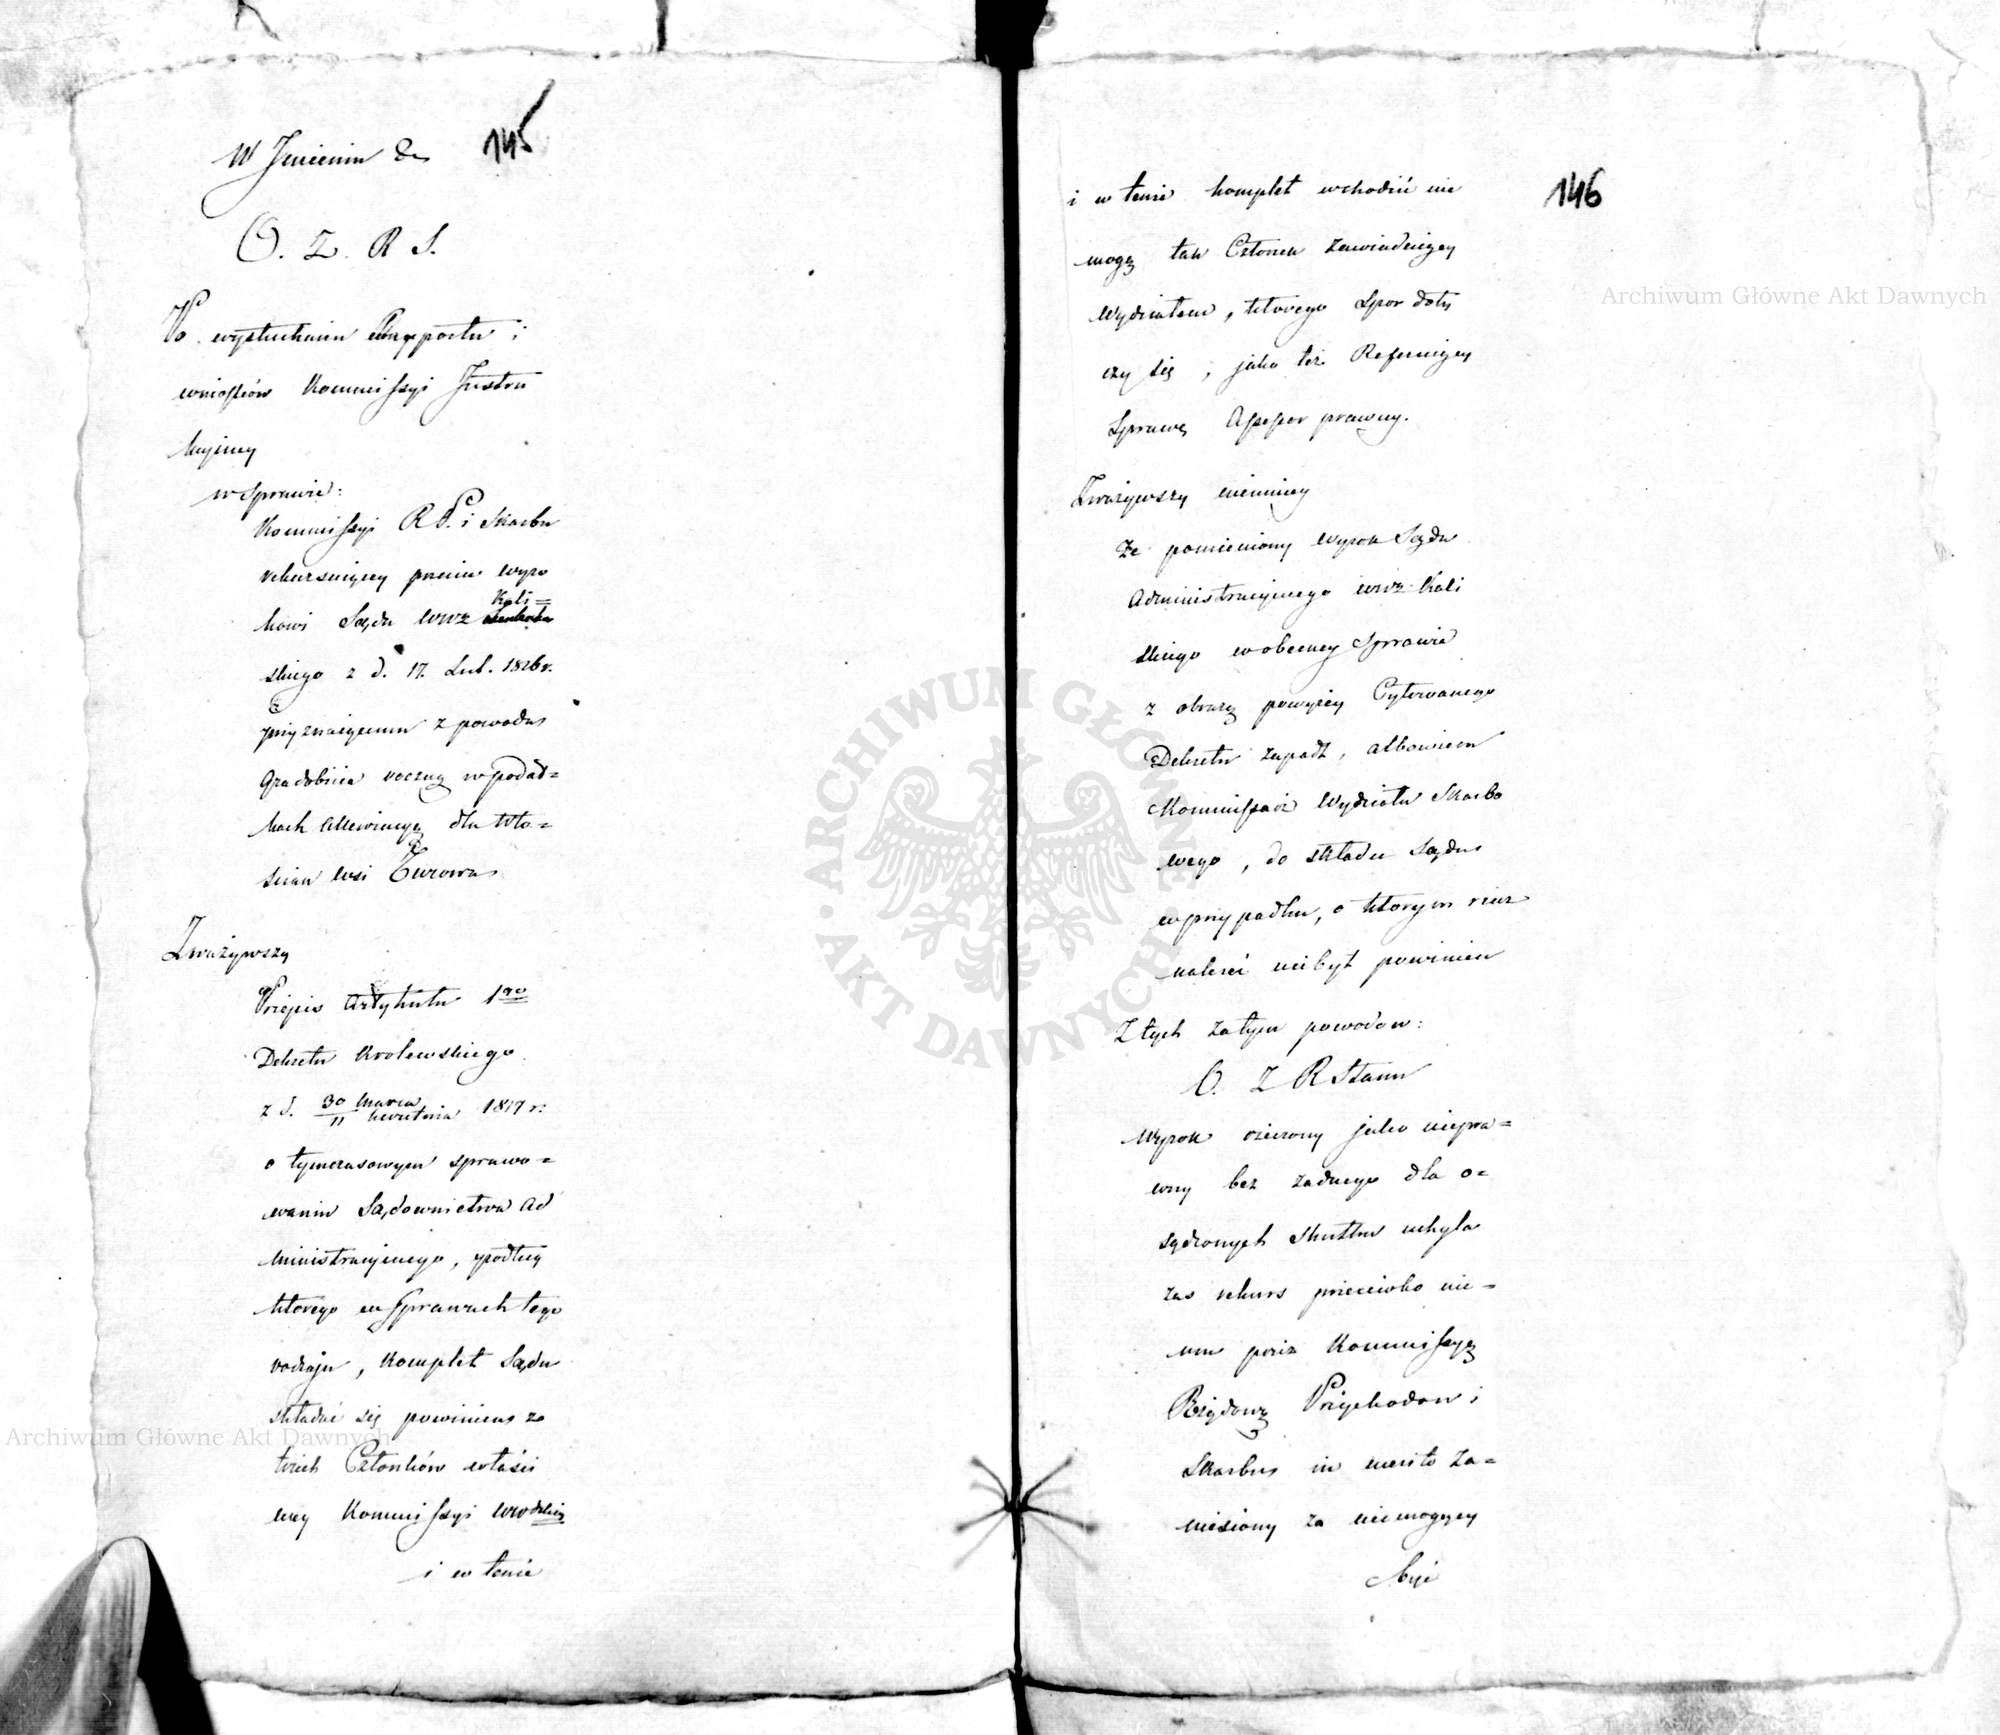 W Jmieniu &c
145
O. Z. R S.
Po wysłuchaniu Rapportu i
wniosków Kommissyi Instru
kcyjney
w Sprawie:
Kommissyi R P. i Skarbu
rekursuiącey przeciw wyro
kowi Sądu Wwz Kali=
skiego z d. 17. Lut. 1826 r.
przyznaiącemu z powodu
Gradobicia roczną w podat=
kach allewiacyą dla Wło=
ścian wsi Turowa
Zważywszy
Przepis Artykułu 1go
Dekretu Krolewskiego
z d. 30 Marca / 11 Kwietnia 1817 r:
o tymczasowym sprawo=
waniu Sądownictwa Ad
ministracyjnego, podług
którego w Sprawach tego
rodzaju, Komplet Sądu
składać się powinien ze
trzech Członków właści
wey Kommissyi Wwodzkiey
i w tenże
146
i w tenże komplet wchodzić nie
mogą tak Członek zawiaduiący
Wydziałem, którego Spor doty
czy się, jako też Referuiący
Sprawę Assessor prawny.
Zważywszy niemniey
Że pomieniony Wyrok Sądu
Administracyjnego Wwz Kali
skiego w obecney Sprawie
z obrazą powyżey Cytowanego
Dekretu zapadł, albowiem
Kommissarz Wydziału Skarbo
wego, do składu Sądu
w przypadku, o którym rzecz
należeć nie był powinien
Z tych zatym powodow:
O. Z R Stanu
Wyrok rzeczony jako niepra=
wny bez żadnego dla o=
sądzonych skutku uchyla
zaś rekurs przeciwko nie=
mu przez Kommissyą
Rządową Przychodow i
Skarbu in merito za=
niesiony za niemogący
bydź
Archiwum Główne Akt Dawnych
ARCHIWUM GŁÓWNE AKT DAWNYCH
Archiwum Główne Akt Dawnych